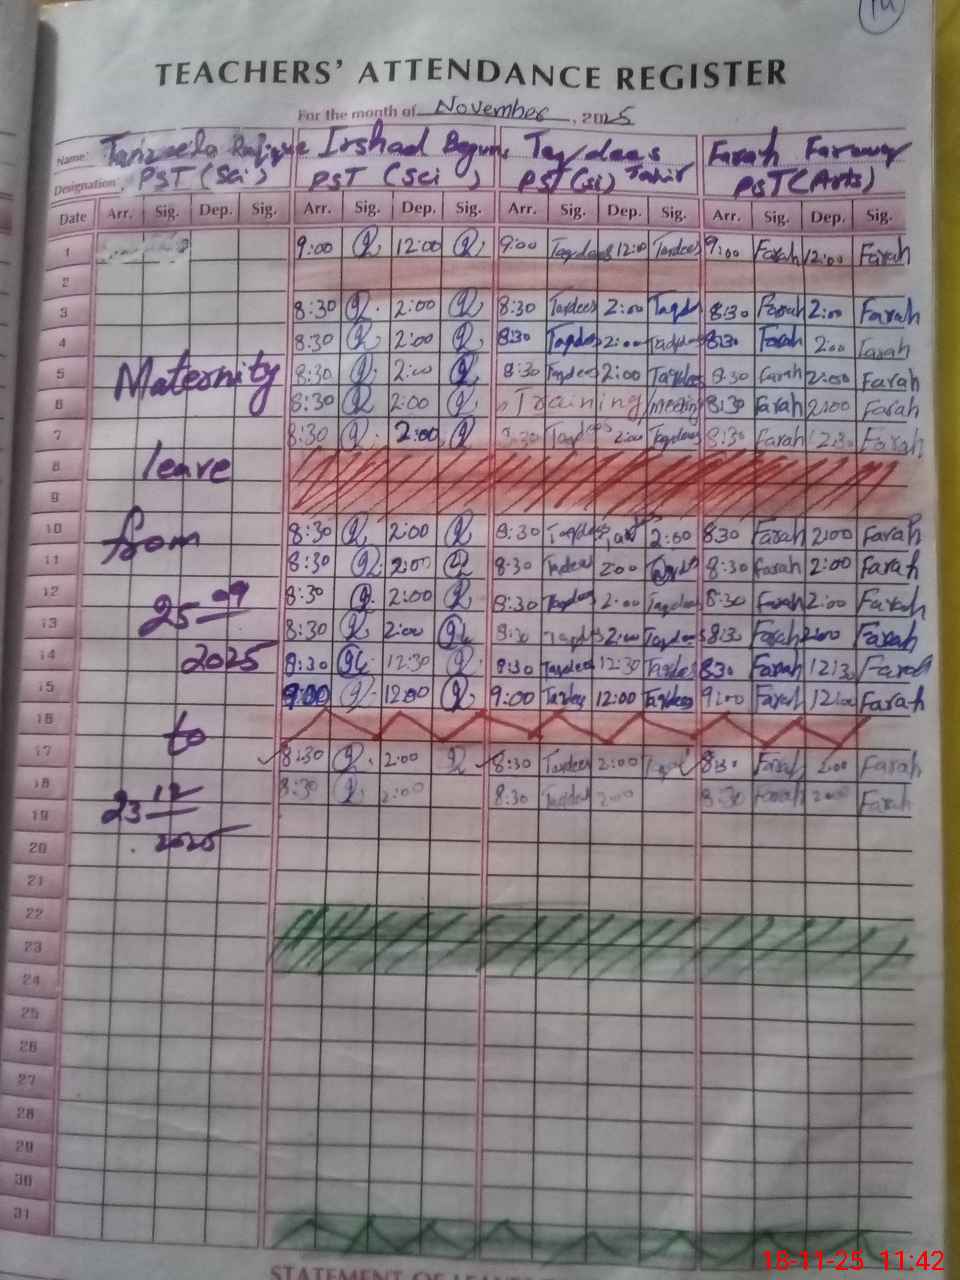 TEACHERS' ATTENDANCE REGISTER
For the month of November, 2025
Name: Irshad Begum Taqdees Farah
Designation: PST (Sci) PST (Sci) PST (Sci) Tahir PST (Arts)
Date Arr. Sig. Dep. Sig. Arr. Sig. Dep. Sig. Arr. Sig. Dep. Sig. Arr. Sig. Dep. Sig.
1 9:00 12:00 9:00 Taqdees 12:00 Taqdees 9:00 Farah 12:00 Farah
2
3 8:30 2:00 8:30 Taqdees 2:00 8:30 Farah 2:00 Farah
4 8:30 2:00 8:30 Taqdees 2:00 Taqdees 8:30 Farah 2:00 Farah
5 Maternity 8:30 2:00 8:30 Taqdees 2:00 Taqdees 8:30 Farah 2:00 Farah
6 8:30 2:00 Training / meeting 8:30 Farah 2:00 Farah
7 8:30 2:00 8:30 Taqdees 2:00 Taqdees 8:30 Farah 12:30 Farah
8 leave
9
10 from 8:30 2:00 8:30 Taqdees 2:00 8:30 Farah 2:00 Farah
11 8:30 2:00 8:30 Taqdees 2:00 8:30 Farah 2:00 Farah
12 25 09 8:30 2:00 8:30 Taqdees 2:00 Taqdees 8:30 Farah 2:00 Farah
13 8:30 2:00 8:30 Taqdees 2:00 Taqdees 8:30 Farah 2:00 Farah
14 2025 8:30 12:30 8:30 Taqdees 12:30 Taqdees 8:30 Farah 12:30 Farah
15 9:00 12:00 9:00 Taqdees 12:00 Taqdees 9:00 Farah 12:00 Farah
16 to
17 8:30 2:00 8:30 Taqdees 2:00 8:30 Farah 2:00 Farah
18 23 12 8:30 2:00 8:30 Taqdees 2:00 8:30 Farah 2:00 Farah
19 2025
20
21
22
23
24
25
26
27
28
29
30
31
STATEMENT OF
18-11-25 11:42